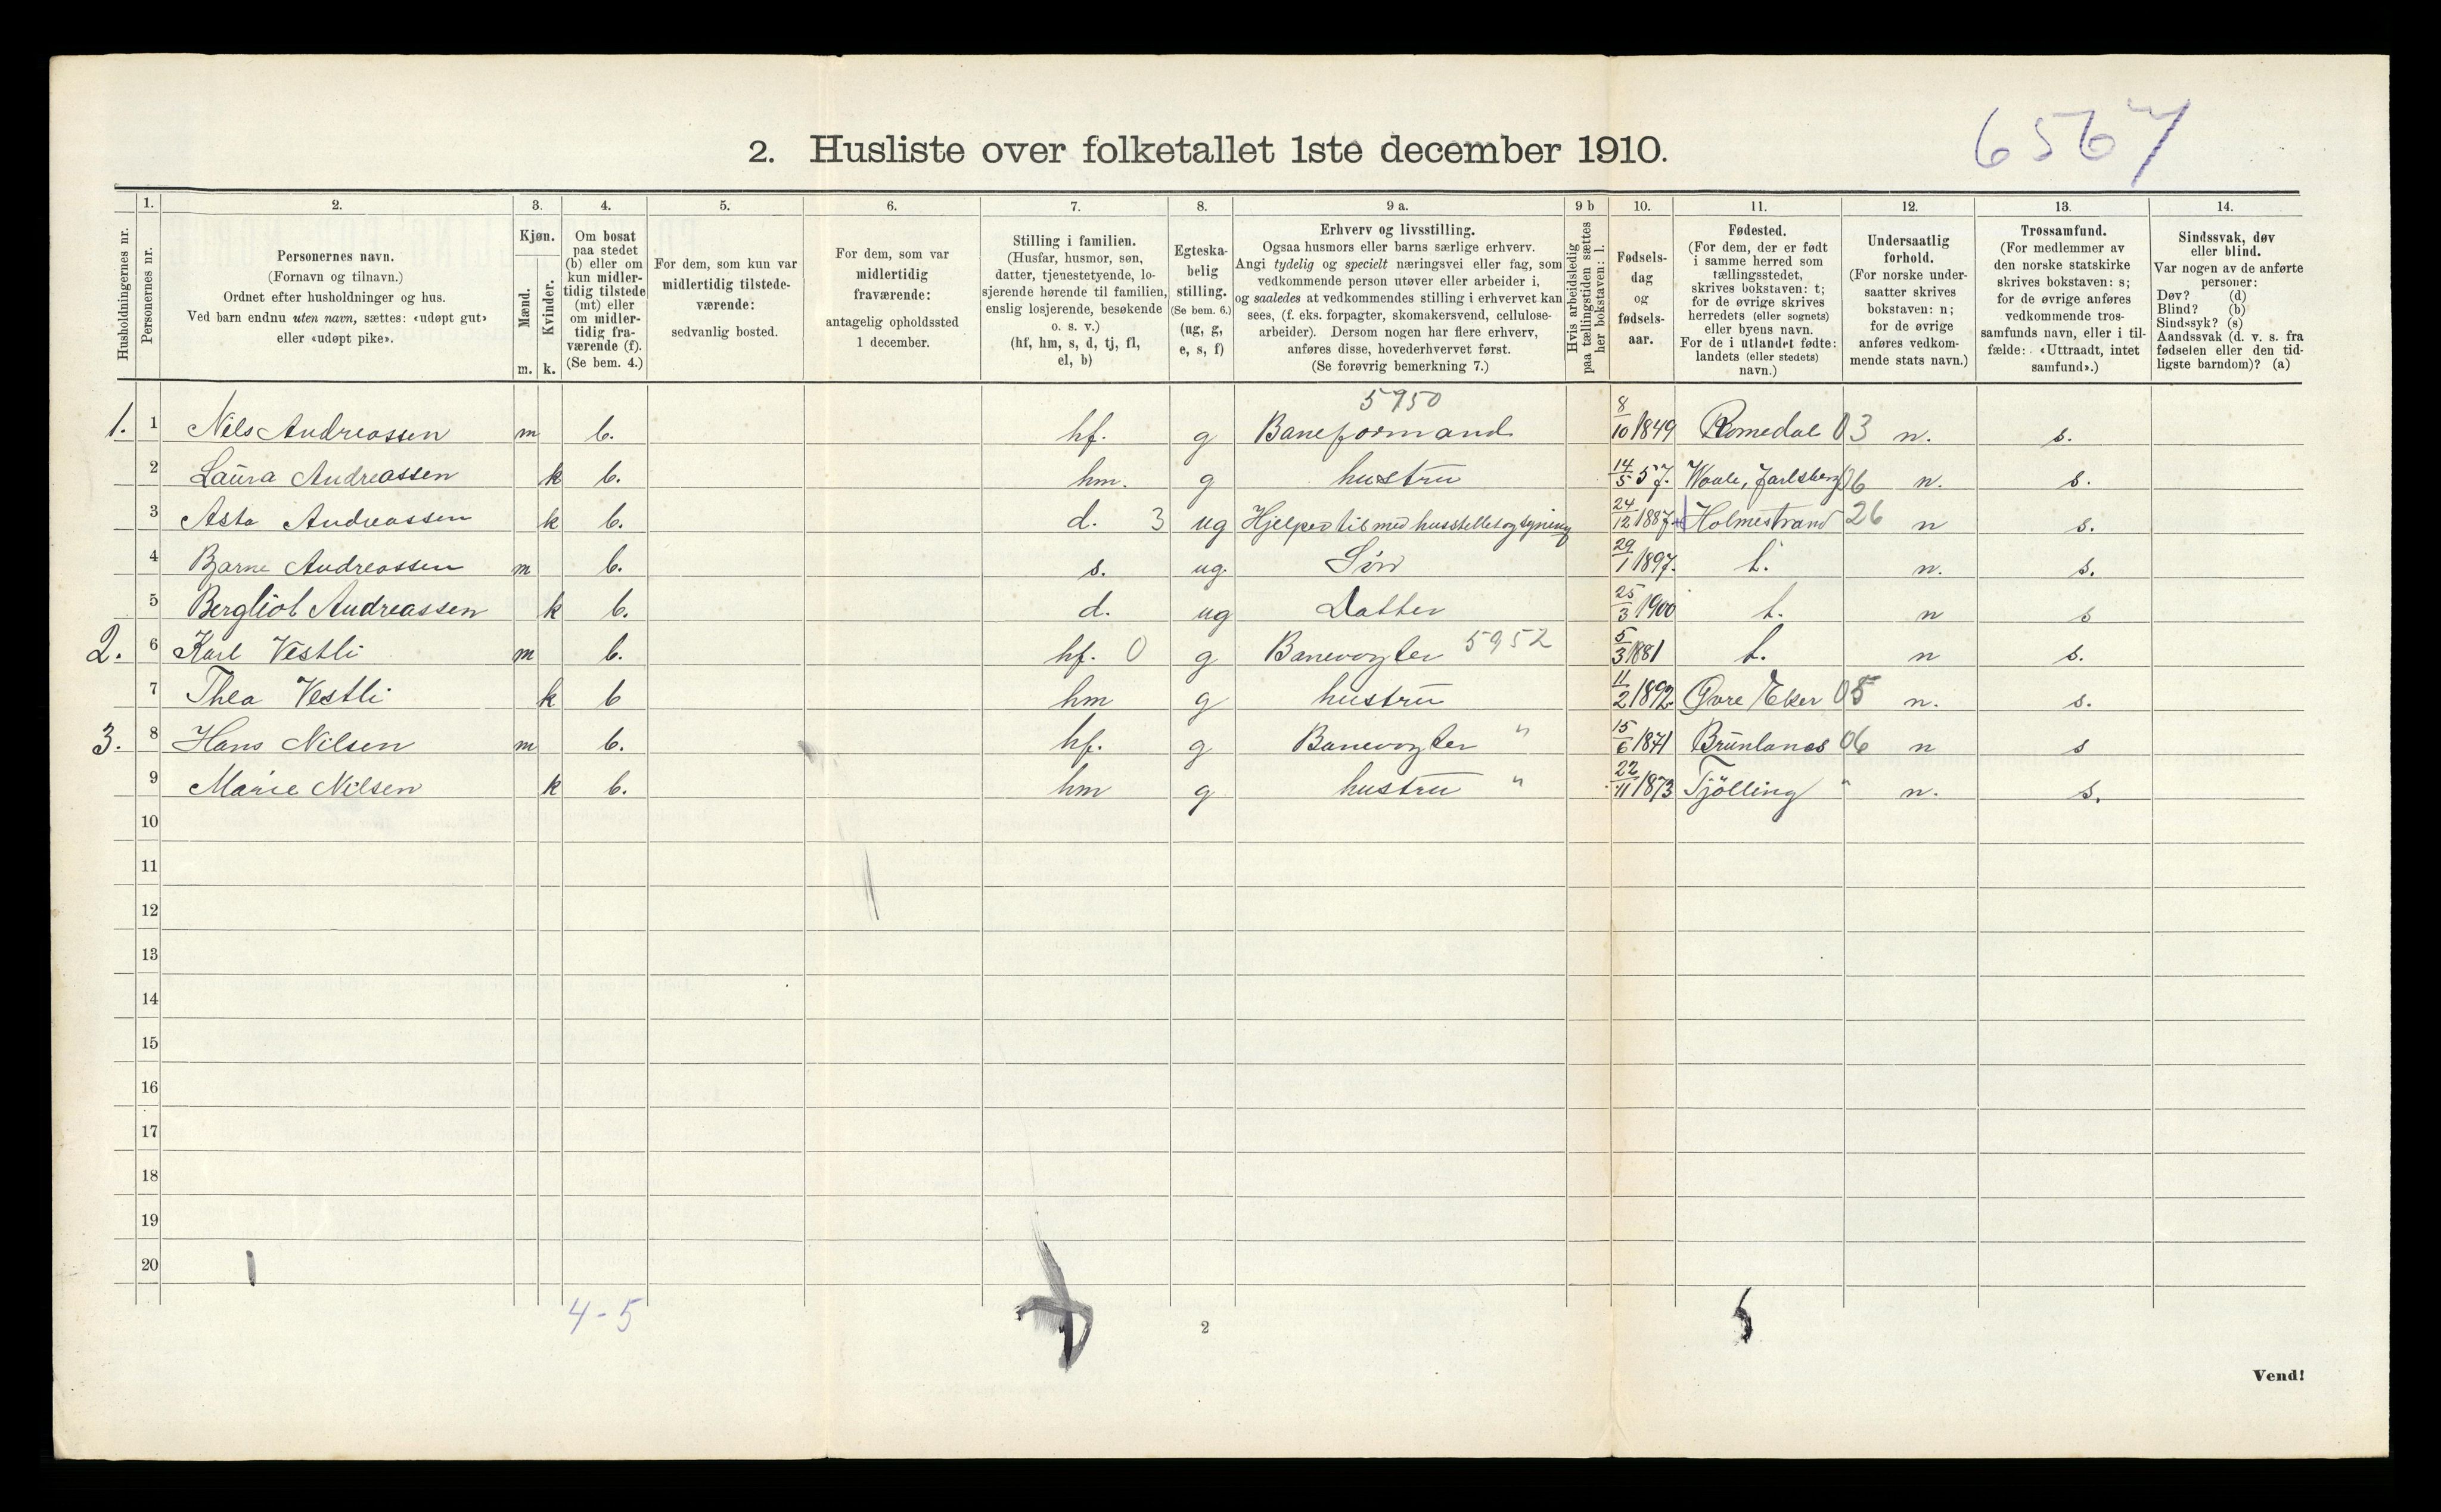 6567
2. Husliste over folketallet 1ste december 1910.
Husholdningernes nr.
1.
Personernes nr.
2.
Personernes navn.
(Fornavn og tilnavn.)
Ordnet efter husholdninger og hus.
Ved barn endnu uten navn, sættes: «udøpt gut»
eller «udøpt pike».
3.
Kjøn.
Mænd.
Kvinder.
m. k.
4.
Om bosat
paa stedet
(b) eller om
kun midler-
tidig tilstede
(mt) eller
om midler-
tidig fra-
værende (f).
(Se bem. 4.)
5.
For dem, som kun var
midlertidig tilstede-
værende:
sedvanlig bosted.
6.
For dem, som var
midlertidig
fraværende:
antagelig opholdssted
1 december.
7.
Stilling i familien.
(Husfar, husmor, søn,
datter, tjenestetyende, lo-
sjerende hørende til familien,
enslig losjerende, besøkende
o. s. v.)
(hf, hm, s, d, tj, fl,
el, b)
8.
Egteska-
belig
stilling.
(Se bem. 6.)
(ug, g,
e, s, f)
9 a.
Erhverv og livsstilling.
Ogsaa husmors eller barns særlige erhverv.
Angi tydelig og specielt næringsvei eller fag, som
vedkommende person utøver eller arbeider i,
og saaledes at vedkommendes stilling i erhvervet kan
sees, (f. eks. forpagter, skomakersvend, cellulose-
arbeider). Dersom nogen har flere erhverv,
anføres disse, hovederhvervet først.
(Se forøvrig bemerkning 7.)
9 b
Hvis arbeidsledig
paa tællingstiden sættes
her bokstaven: l.
10.
Fødsels-
dag
og
fødsels-
aar.
11.
Fødested.
(For dem, der er født
i samme herred som
tællingsstedet,
skrives bokstaven: t;
for de øvrige skrives
herredets (eller sognets)
eller byens navn.
For de i utlandet fødte:
landets (eller stedets)
navn.)
12.
Undersaatlig
forhold.
(For norske under-
saatter skrives
bokstaven: n;
for de øvrige
anføres vedkom-
mende stats navn.)
13.
Trossamfund.
(For medlemmer av
den norske statskirke
skrives bokstaven: s;
for de øvrige anføres
vedkommende tros-
samfunds navn, eller i til-
fælde: «Uttraadt, intet
samfund».)
14.
Sindssvak, døv
eller blind.
Var nogen av de anførte
personer:
Døv? (d)
Blind? (b)
Sindssyk? (s)
Aandssvak (d. v. s. fra
fødselen eller den tid-
ligste barndom)? (a)
5950
1. 1 Nils Andreassen m b. hf. g Baneformand 8/10 1849 Romedal 03 n. s.
2 Laura Andreassen k b. hm. g hustru 14/5 57. Waale, Jarlsberg 06 n. s.
3 Asta Andreassen k b. d. 3 ug Hjelper til med husstellet og syning 24/12 1887 Holmestrand 26 n s.
4 Bjarne Andreassen m b. s. ug. Søn 29/1 1897. t. n. s.
5 Bergliot Andreassen k b. d. ug Datter 25/3 1900 t. n s
2. 6 Karl Vestli m b. hf. 0 g Banevogter 5952 5/3 1881 t. n s.
7 Thea Vestli k b hm g hustru 11/2 1892 Øvre Eker 05 n. s.
3. 8 Hans Nilsen m b. hf. g Banevogter " 15/6 1871 Brunlanes 06 n s
9 Marie Nilsen k b. hm g hustru " 22/11 1873 Tjölling " n. s.
10
11
12
13
14
15
16
17
18
19
20
4-5
2
Vend!